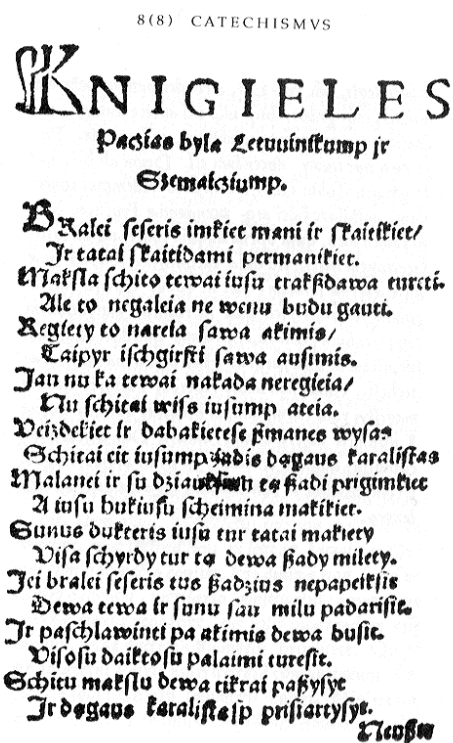 8(8) CATECHISMVS
KNIGIELES
Paczias byla Letuuinſkump ir
Szemaicziump.
BRalei ſeſeris imkiet mani ir ſkaitikiet/
Ir tatai ſkaitidami permanikiet.
Makſla ſchito tewai iuſu trakßdawa tureti.
Ale to negaleia ne wenu budu gauti.
Regiety to nareia ſawa akimis/
Taipyr iſchgirſti ſawa auſimis.
Jau nu ka tewai nakada neregieia/
Nu ſchitai wiſs iuſump ateia.
Veizdekiet ir dabakieteſe ßmanes wyſas
Schitai eit iuſump ßadis dągaus karaliſtas
Malanei ir ſu dziaukſmu tą ßadi prigimkiet
A iuſu hukiuſu ſcheimina makikiet.
Sunus dukteris iuſu tur tatai makiety
Viſa ſchyrdy tur tą dewa ßady milety.
Jei bralei ſeſeris tus ßadzius nepapeikſit
Dewa tewa ir ſunu ſau milu padariſit.
Ir paſchlawinti pa akimis dewa buſit.
Viſoſu daiktoſu palaimi tureſit.
Schitu makſlu dewa tikrai paßyſyt
Ir dągaus karaliſtaſp priſiartyſyt.